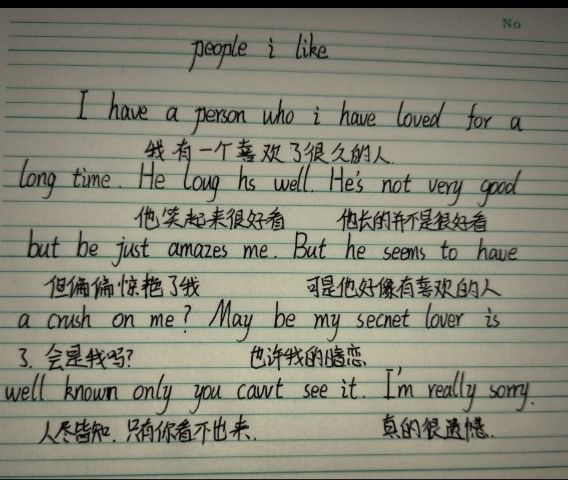 No
people i like
I have a person who i have loved for a
我有一个喜欢了很久的人.
long time. He loug hs well. He's not very good
他笑起来很好看 他长的并不是很好看
but be just amazes me. But he seems to have
但偏偏惊艳了我 可是他好像有喜欢的人
a crush on me? May be my secnet lover is
了. 会是我吗? 也许我的暗恋
well known only you cavvt see it. I'm really sorry.
人尽皆知. 只有你看不出来. 真的很遗憾.